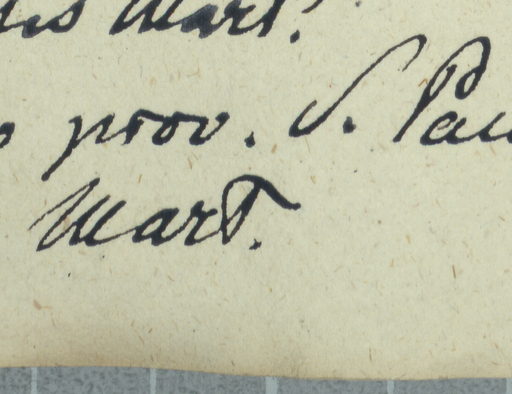 Mart.
prov. S. Pau
Mart.